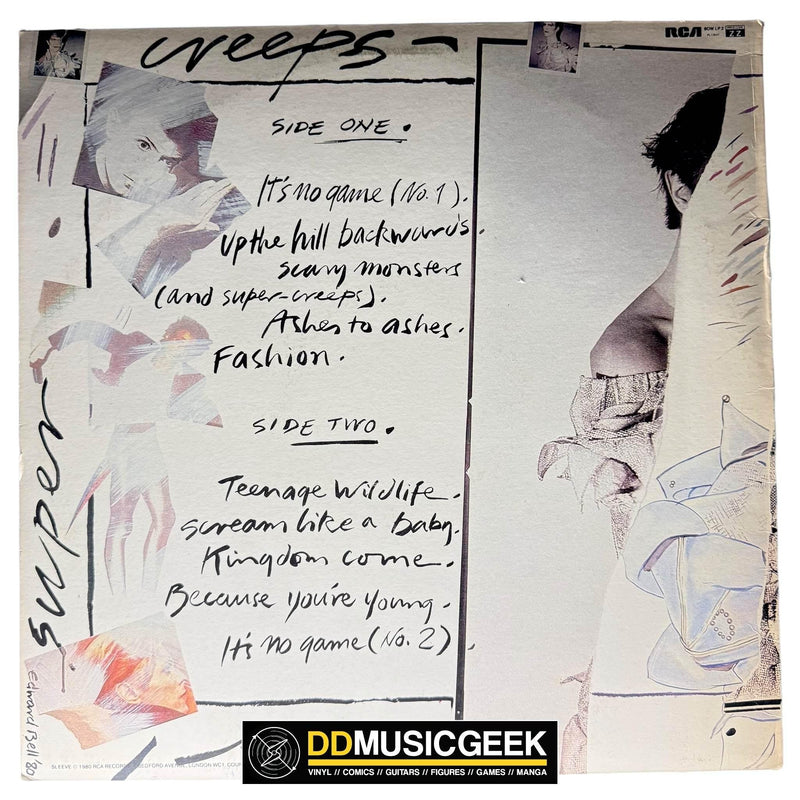 creeps
RCA BOW LP 2
ZZ
SIDE ONE.
It's no game (No. 1).
Up the hill backwards.
scary monsters
(and super-creeps).
Ashes to ashes.
Fashion.
SIDE TWO.
Teenage Wildlife.
Scream like a baby.
Kingdom come.
Because you're young.
It's no game (No. 2).
super
Edward Bell '80
SLEEVE © 1980 RCA RECORDS, BEDFORD AVENUE, LONDON WC1.
DDMUSICGEEK
VINYL // COMICS // GUITARS // FIGURES // GAMES // MANGA